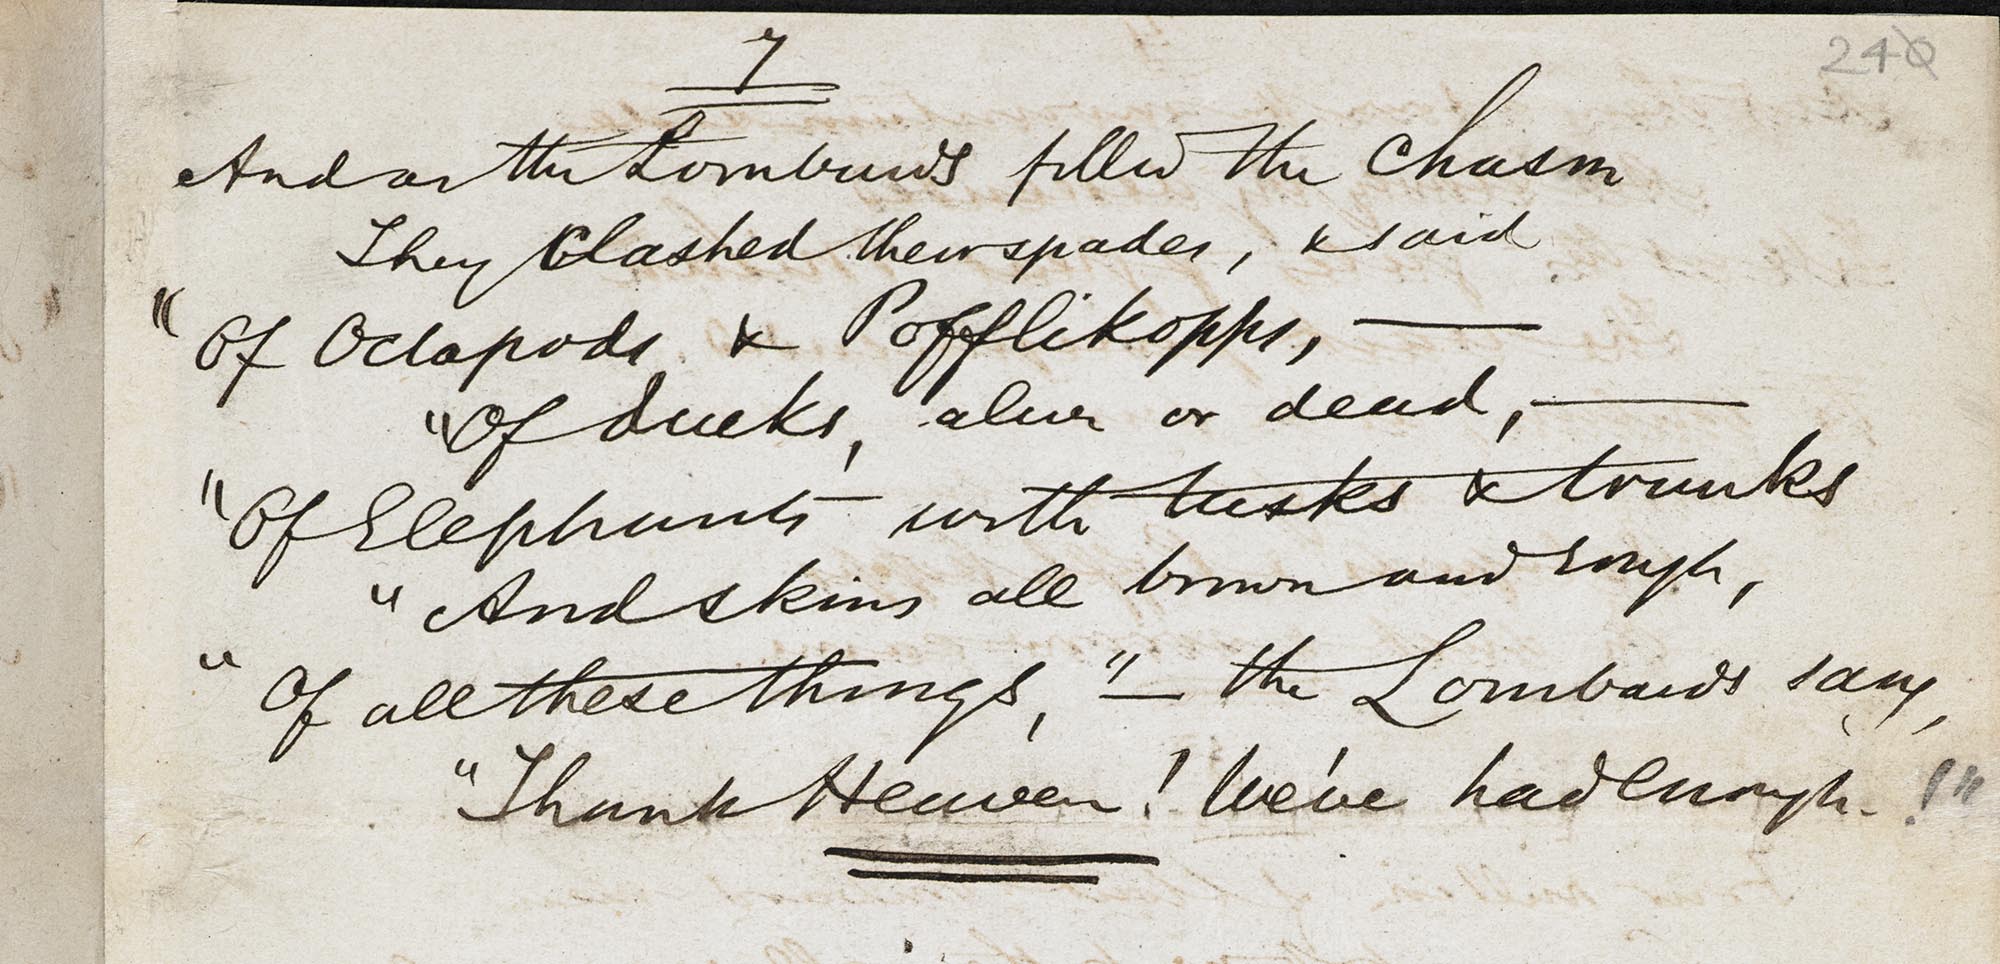 240
7
And as the Lombards filled the Chasm
They clashed their spades, & said
"Of Octapods & Pofflikopps, —
"Of Ducks, alive or dead, —
"Of Elephants — with tusks & trunks
"And skins all brown and rough,
"Of all these things," — the Lombards say,
"Thank Heaven! We've had enough!"